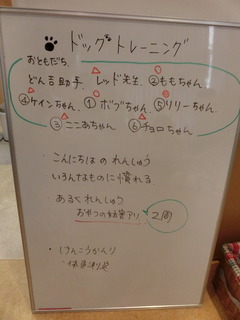 ドッグトレーニング
おともだち、
どん吉助手、レッド先生、②ももちゃん、
④ケインちゃん、①ボブちゃん、⑤リリーちゃん、
③ここあちゃん、⑥チョロちゃん、
こんにちはのれんしゅう
いろんなものに慣れる
あるくれんしゅう
おやつの効果アリ
2周
・けんこうかんり
・体重測定